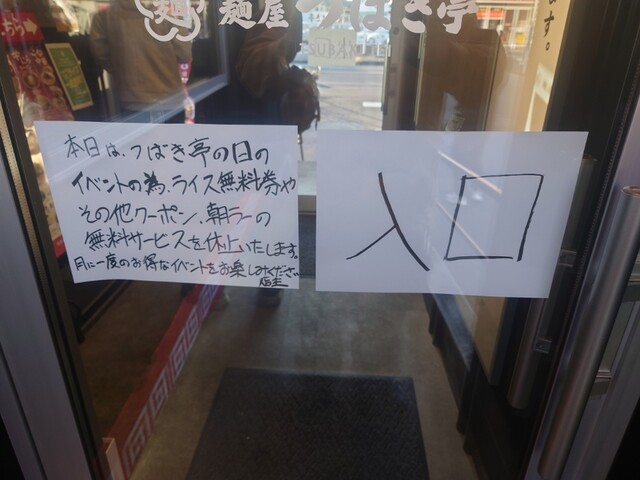 麺屋 つばき亭
本日は、つばき亭の日の
イベントの為、ライス無料券や
その他クーポン、朝ラーの
無料サービスを休止いたします。
月に一度のお得なイベントをお楽しみください
店主
入口
ます。